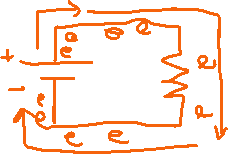 e e e
e
+ e
-
e e
e
e e